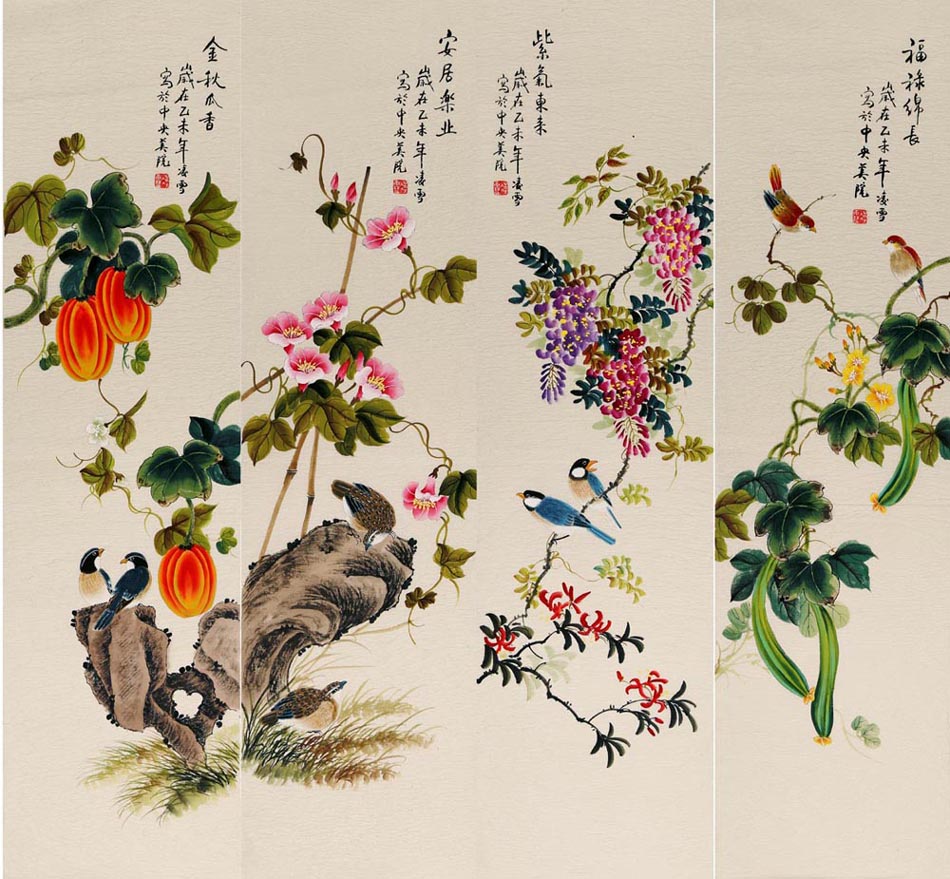 金秋瓜香
歲在乙未年凌雪
寫於中央美院
安居樂业
歲在乙未年凌雪
寫於中央美院
紫氣東来
歲在乙未年凌雪
寫於中央美院
福祿绵長
歲在乙未年凌雪
寫於中央美院